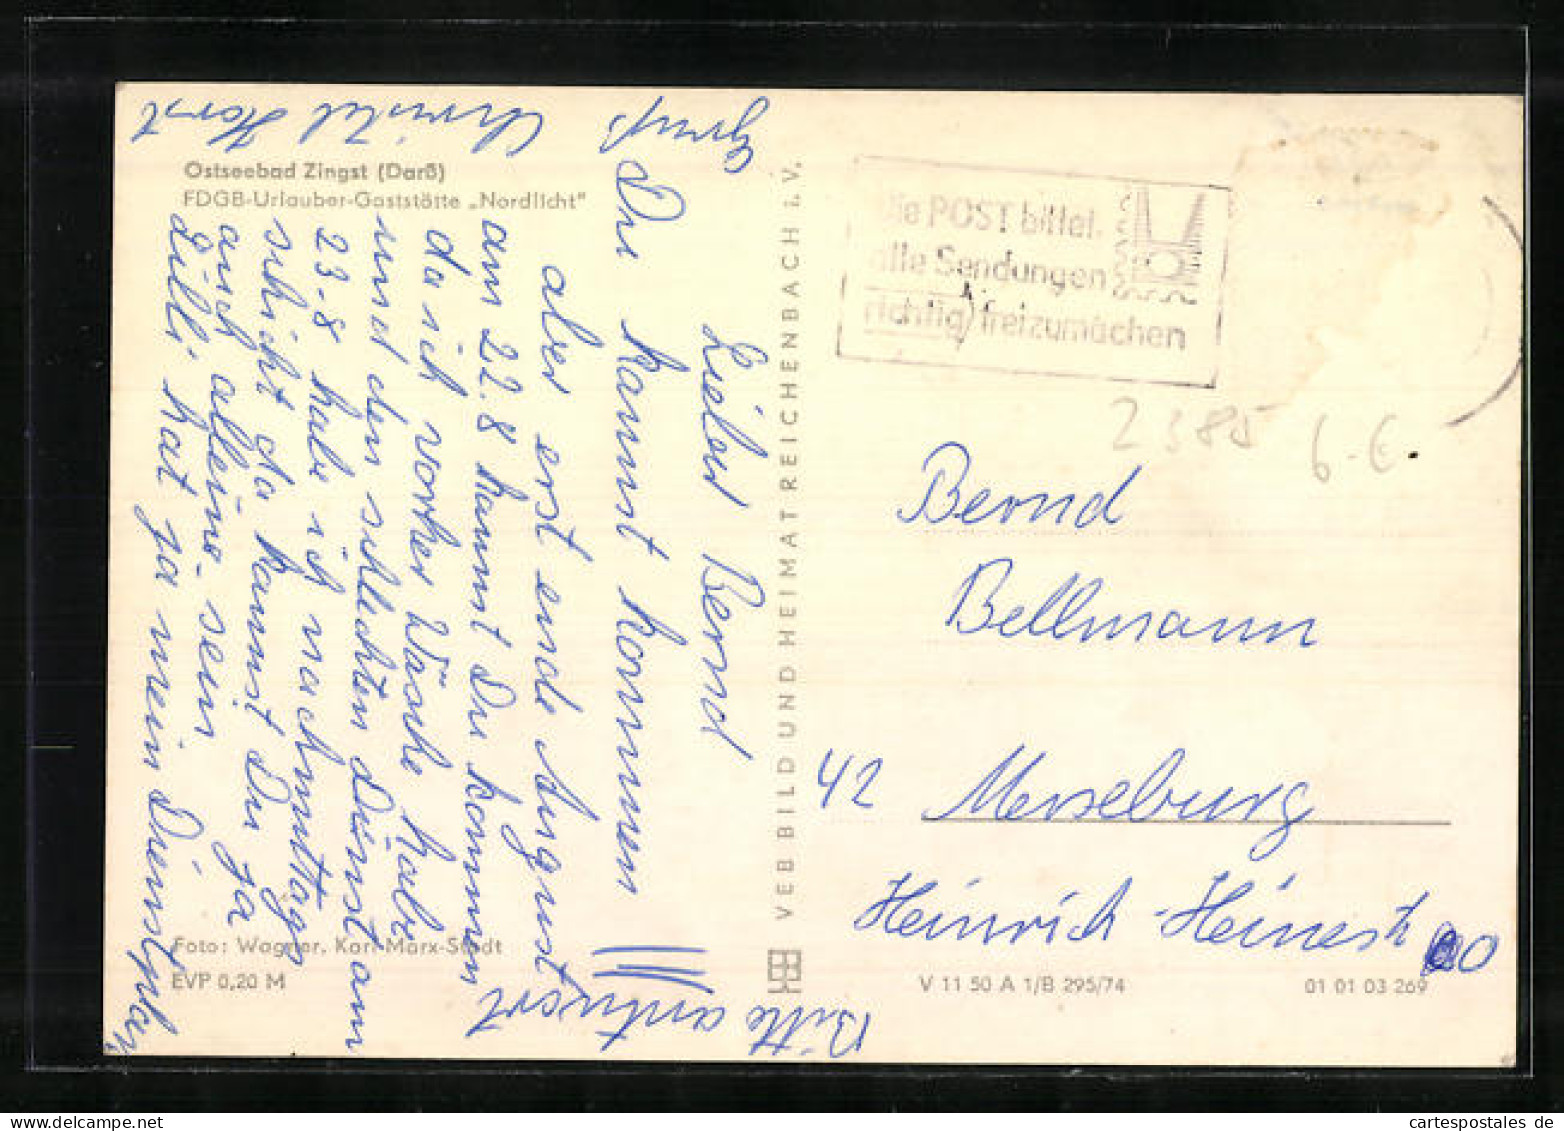 Ostseebad Zingst (Darß)
FDGB-Urlauber-Gaststätte „Nordlicht"
Lieber Bernd
Du kannst kommen
aber erst ende August
am 22.8 kannst Du kommen
da ich vorher Wäsche habe
und den schlechten Dienst am
23.8 habe ich nachmittags
schicht da kannst Du ja
auch alleine sein
Lilli hat ja mein Dienstplan
Gruß Christel Horst
Bitte antwort
Foto: Wagner, Karl-Marx-Stadt
EVP 0,20 M
VEB BILD UND HEIMAT REICHENBACH i. V.
Die POST bittet,
alle Sendungen
richtig freizumachen
2385 6.-€.
Bernd
Bellmann
42 Merseburg
Heinrich-Heinestr 0
V 11 50 A 1/B 295/74
01 01 03 269
cartespostales.de